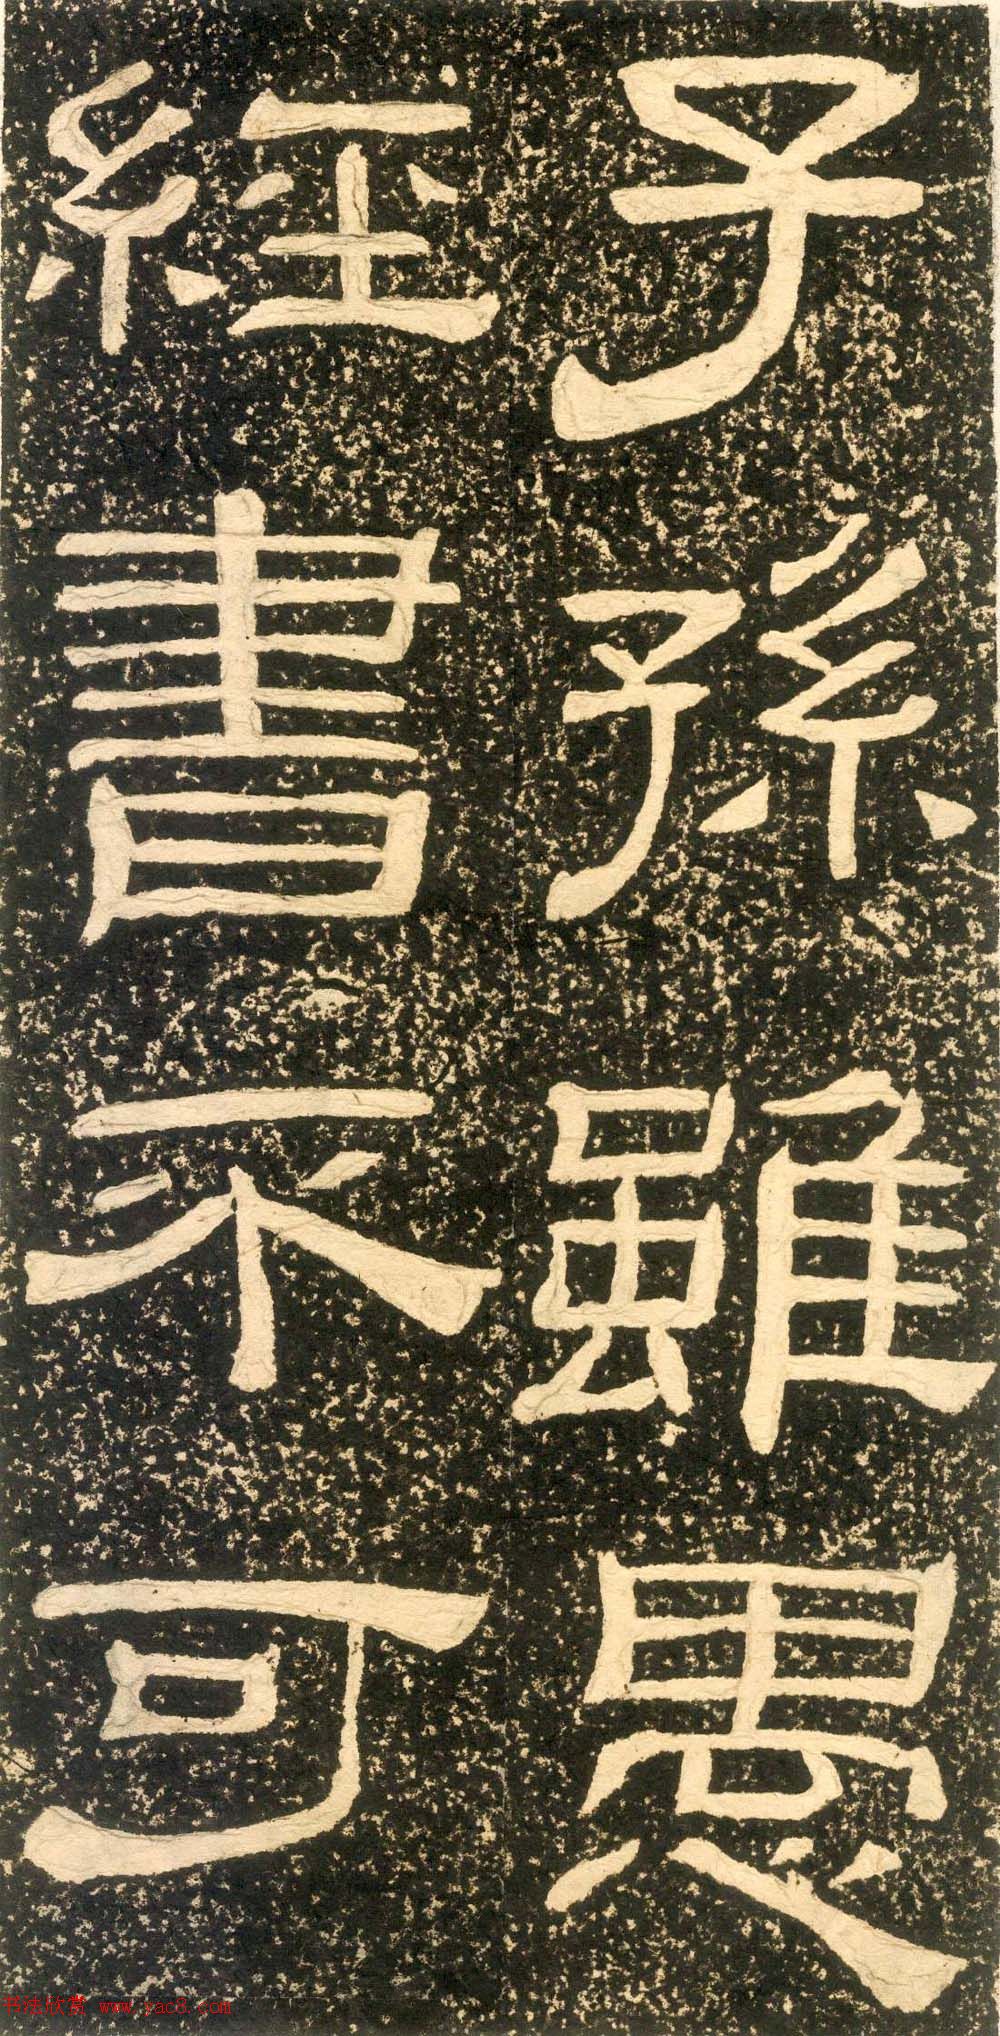 子孫雖愚
經書不可
书法欣赏 www.yac8.com